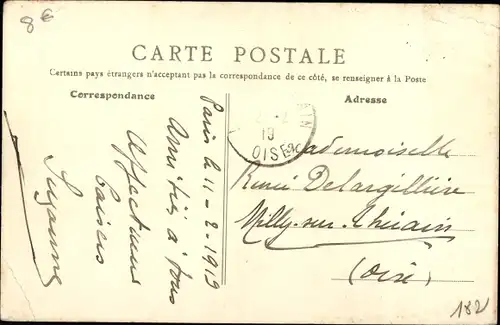 8€
CARTE POSTALE
Certains pays étrangers n'acceptant pas la correspondance de ce côté, se renseigner à la Poste
Correspondance
Adresse
Paris le 11-2-1919
Amitiés à tous
Affectueux
baisers
Suzanne
19
OISE
Mademoiselle
Renée Delargillière
Milly-sur-Thérain
(Oise)
182